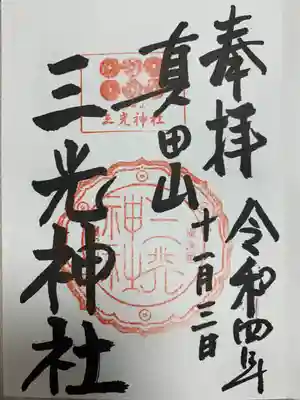 奉拝
令和四年
十一月三日
真田山
三光神社
三光神社
三光
神社